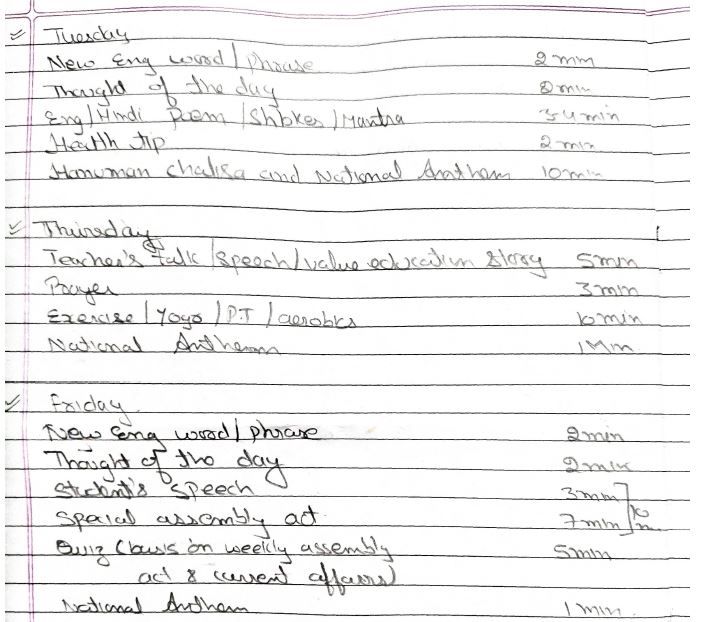 Tuesday
New Eng word / phrase 2 min
Thought of the day 2 min
Eng / Hindi Poem / Shlokes / Mantra 3-4 min
Health tip 2 min
Hanuman Chalisa and National Anthem 10 min
Thursday
Teacher's talk / speech / value education story 5 min
Prayer 3 min
Exercise / Yoga / P.T / aerobics 10 min
National Anthem 1 Min
Friday
New Eng word / phrase 2 min
Thought of the day 2 min
Student's speech 3 min
Special assembly act 7 min
Quiz (basis on weekly assembly 5 min
act & current affairs)
National Anthem 1 min.